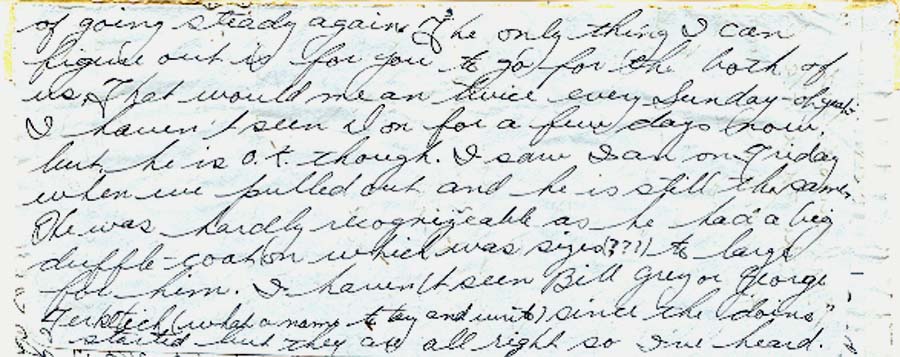 of going steady again. The only thing I can
figure out is for you to go for the both of
us. That would mean twice every Sunday - oh yeah.
I haven't seen Don for a few days now.
but he is O.K. though. I saw Ian on Friday
when we pulled out and he is still the same.
He was hardly recognizeable as he had a big
duffle-coat on which was sizes (???) to large
for him. I haven't seen Bill Grey or George
(what a name to say and write) since the "doins"
started but they are all right so I've heard.